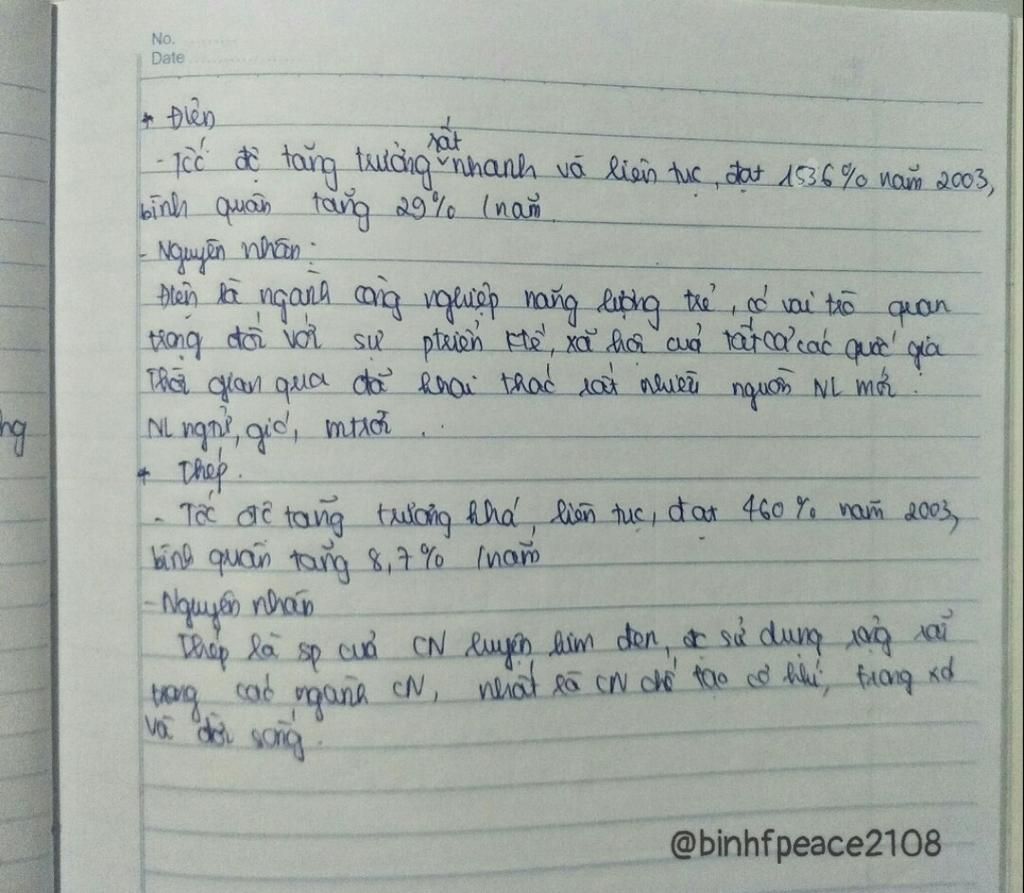 No.
Date
* Điện
- Tốc độ tăng trưởng rất nhanh và liên tục, đạt 1536% năm 2003,
bình quân tăng 29% /năm
- Nguyên nhân:
Điện là ngành công nghiệp năng lượng trẻ, có vai trò quan
trọng đối với sự ptriển ktế, xã hội của tất cả các quốc gia
Thời gian qua đã khai thác rất nhiều nguồn NL mới:
NL ngtử, gió, mtrời ...
* Thép.
- Tốc độ tăng trưởng khá, liên tục, đạt 460% năm 2003,
bình quân tăng 8,7% /năm
- Nguyên nhân
Thép là sp của CN luyện kim đen, đc sử dụng rộng rãi
trong các ngành CN, nhất là CN chế tạo cơ khí, trong xd
và đời sống.
ng
@binhfpeace2108